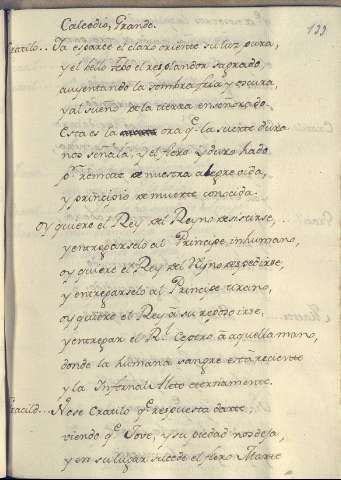 Calcedio, Grande.
199
Cratilo... Ya esparce el claro oriente su luz pura,
y el bello Febo el resplandor sagrado,
auyentando la sombra fria y escura,
y al sueño de la tierra enseñorado.
Esta es la ora q.e la suerte dura
nos señala, y el fiero y duro hado
p.r remate de nuestra alegre vida,
y principio de muerte conocida.
Oy quiere el Rey del Reyno desistirse,
y entregarselo al Principe inhumano,
oy quiere el Rey del Reyno despedirse,
y entregarselo al Principe tirano,
oy quiere el Rey a su reposo irse,
y entregar el R.l Ceptro a aquella mano,
donde la humana sangre está reciente
y la Infernal Aleto eternamente.
No se Cratilo q.e respuesta darte,
viendo q.e Jove, y su piedad nos deja,
y en su lugar sucede el fiero Marte